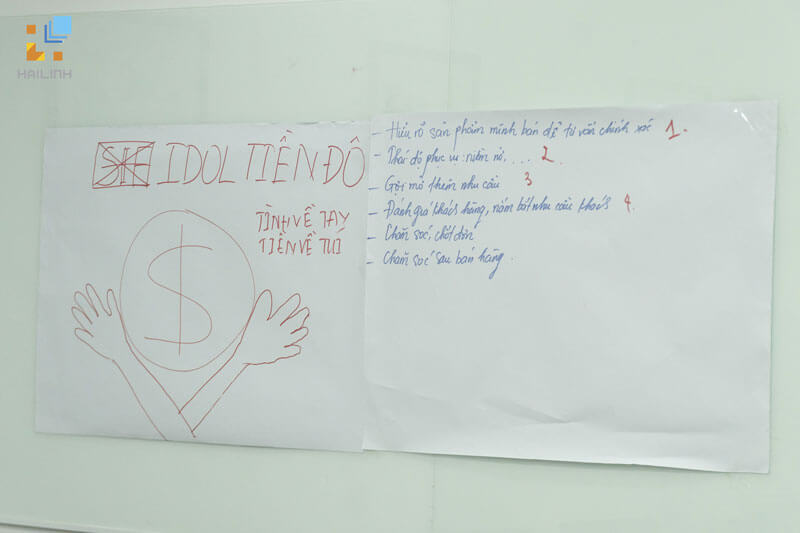 HAILINH
IDOL TIỀN ĐÔ
TÌNH VỀ TAY
TIỀN VỀ TÚI
- Hiểu rõ sản phẩm mình bán để tư vấn chính xác 1.
- Thái độ phục vụ: niềm nở, ... 2.
- Gợi mở thêm nhu cầu 3
- Đánh giá khách hàng, nắm bắt nhu cầu khách 4.
- Chăm sóc, chốt đơn
- Chăm sóc sau bán hàng.